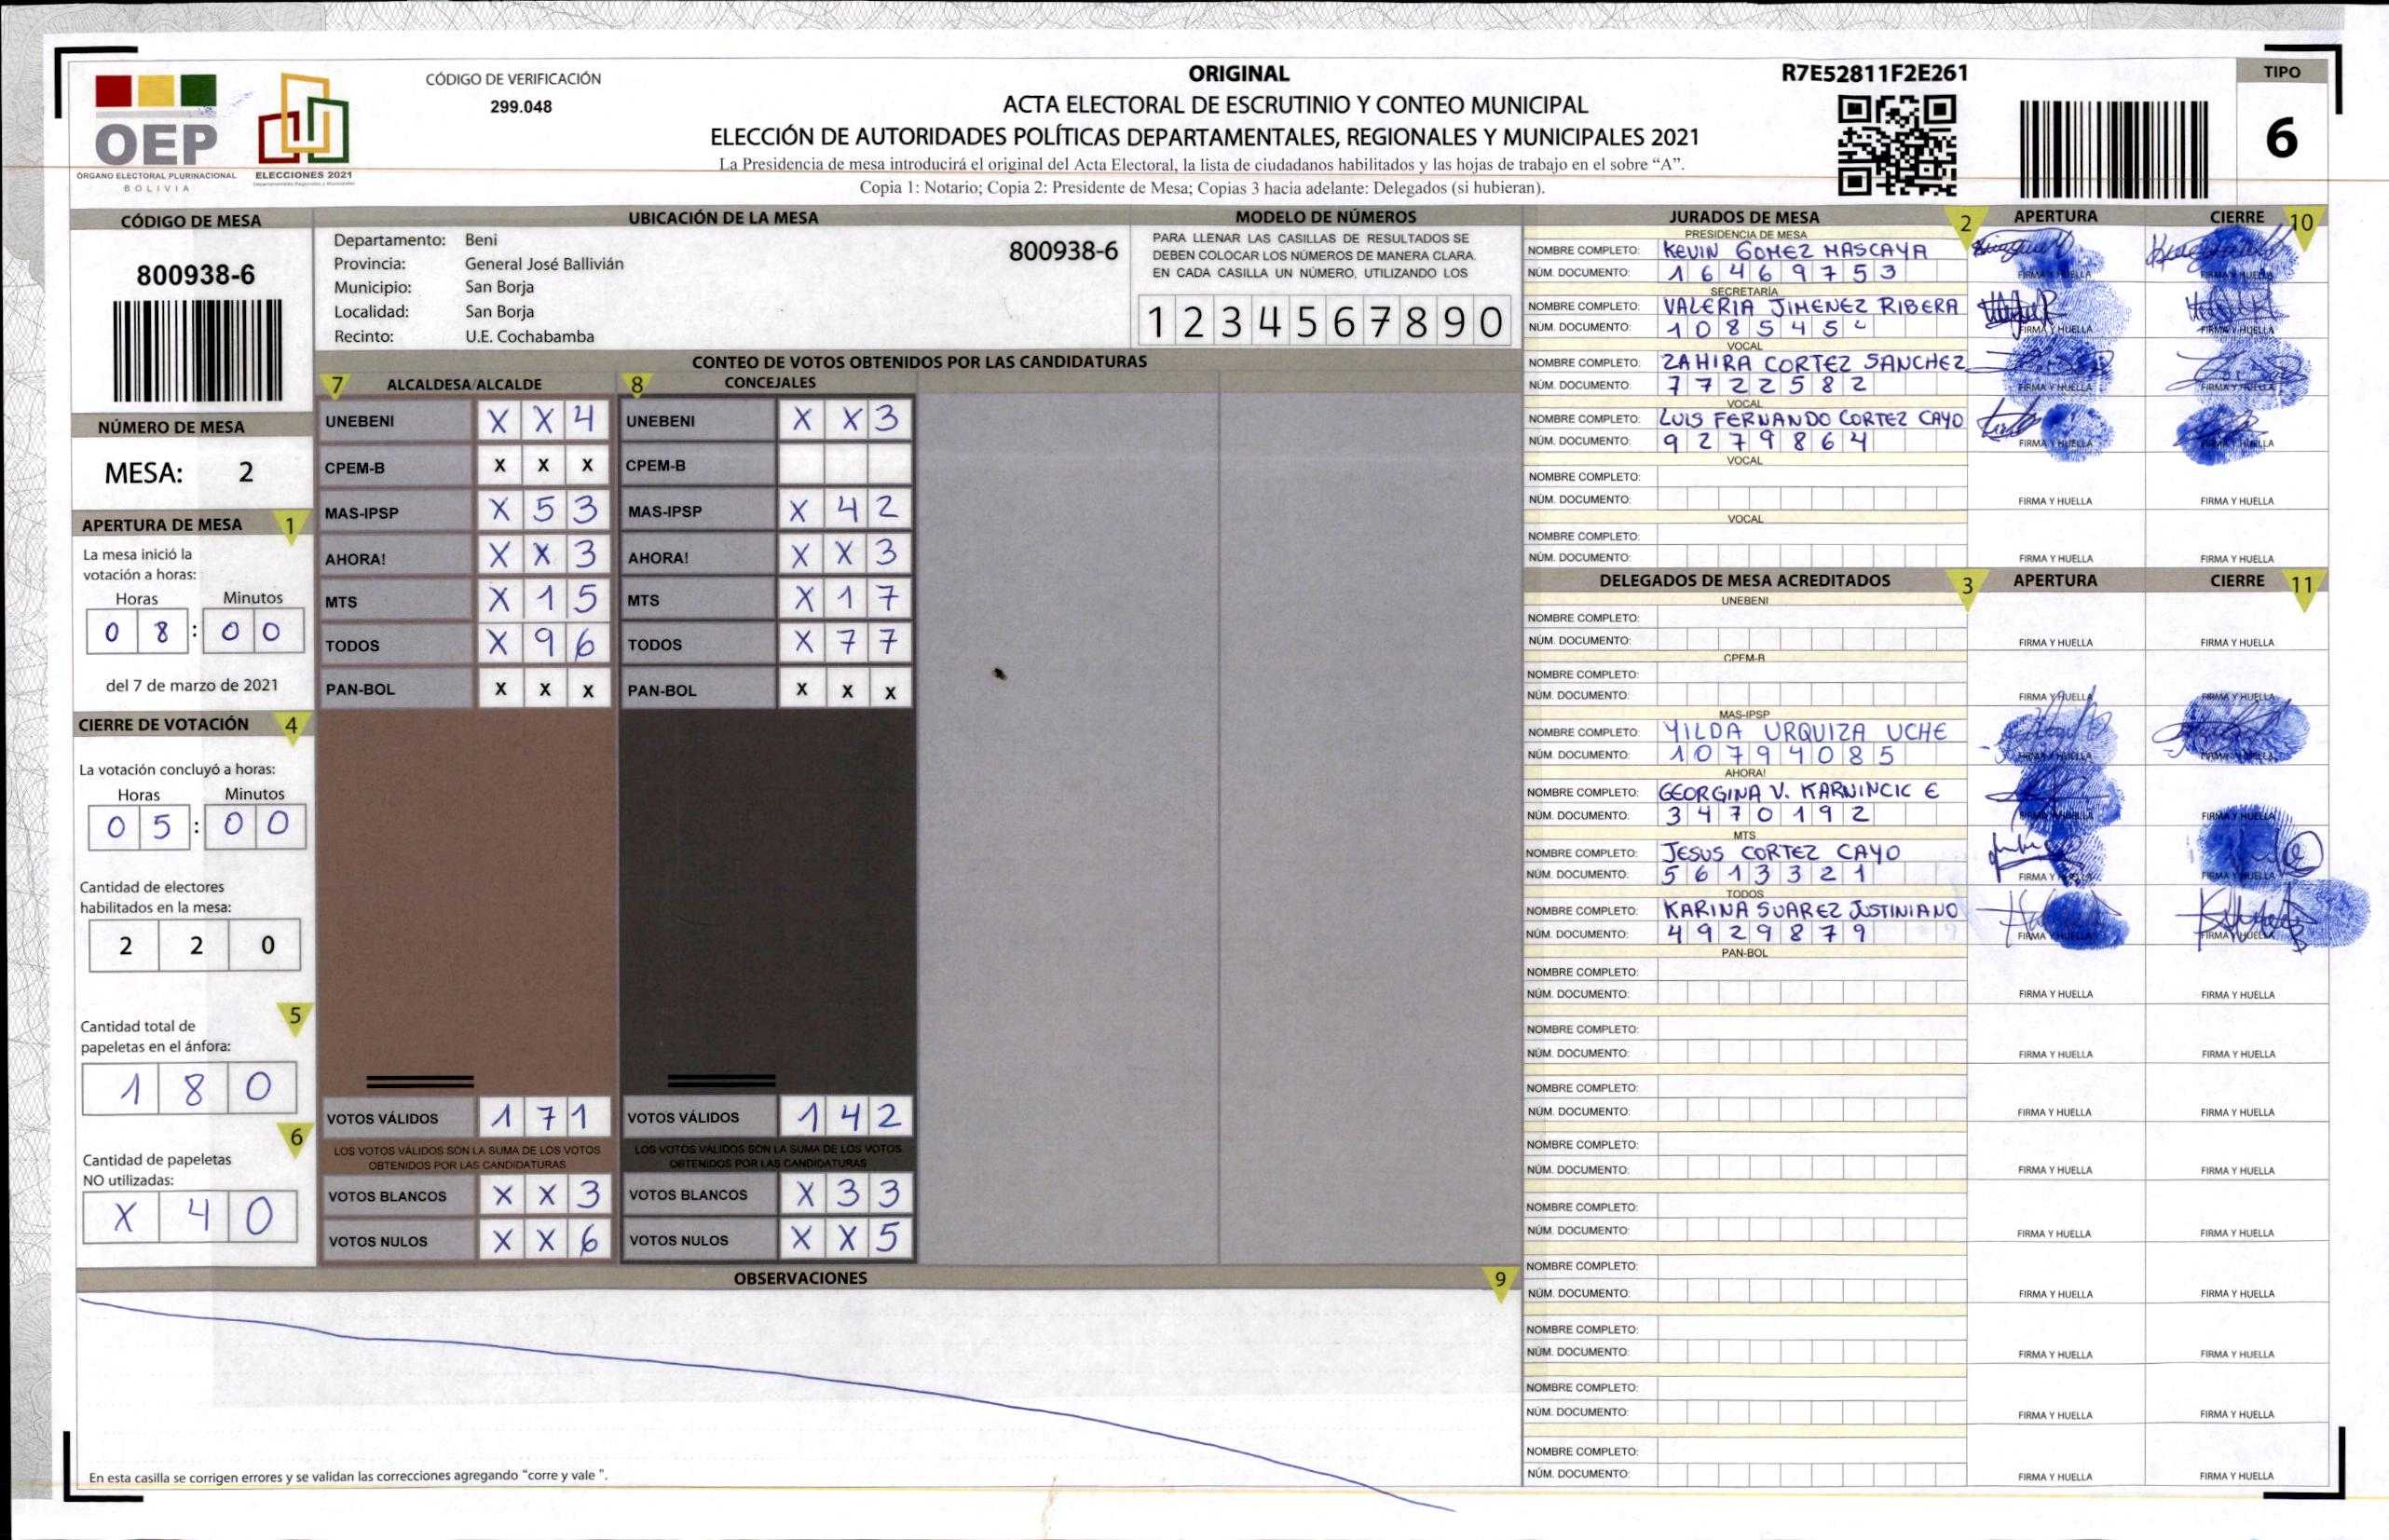 CÓDIGO DE VERIFICACIÓN
299.048
OEP
ÓRGANO ELECTORAL PLURINACIONAL
BOLIVIA
ELECCIONES 2021
ORIGINAL
ACTA ELECTORAL DE ESCRUTINIO Y CONTEO MUNICIPAL
ELECCIÓN DE AUTORIDADES POLÍTICAS DEPARTAMENTALES, REGIONALES Y MUNICIPALES 2021
La Presidencia de mesa introducirá el original del Acta Electoral, la lista de ciudadanos habilitados y las hojas de trabajo en el sobre “A”.
Copia 1: Notario; Copia 2: Presidente de Mesa; Copias 3 hacia adelante: Delegados (si hubieran).
R7E52811F2E261
TIPO
6
CÓDIGO DE MESA
800938-6
NÚMERO DE MESA
MESA: 2
APERTURA DE MESA 1
La mesa inició la
votación a horas:
Horas Minutos
0 8 : 0 0
del 7 de marzo de 2021
CIERRE DE VOTACIÓN 4
La votación concluyó a horas:
Horas Minutos
0 5 : 0 0
Cantidad de electores
habilitados en la mesa:
2 2 0
5
Cantidad total de
papeletas en el ánfora:
1 8 0
6
Cantidad de papeletas
NO utilizadas:
X 4 0
UBICACIÓN DE LA MESA
Departamento: Beni
Provincia: General José Ballivián
Municipio: San Borja
Localidad: San Borja
Recinto: U.E. Cochabamba
800938-6
MODELO DE NÚMEROS
PARA LLENAR LAS CASILLAS DE RESULTADOS SE
DEBEN COLOCAR LOS NÚMEROS DE MANERA CLARA.
EN CADA CASILLA UN NÚMERO, UTILIZANDO LOS
1 2 3 4 5 6 7 8 9 0
CONTEO DE VOTOS OBTENIDOS POR LAS CANDIDATURAS
7 ALCALDESA/ALCALDE 8 CONCEJALES
UNEBENI X X 4 UNEBENI X X 3
CPEM-B X X X CPEM-B
MAS-IPSP X 5 3 MAS-IPSP X 4 2
AHORA! X X 3 AHORA! X X 3
MTS X 1 5 MTS X 1 7
TODOS X 9 6 TODOS X 7 7
PAN-BOL X X X PAN-BOL X X X
VOTOS VÁLIDOS 1 7 1 VOTOS VÁLIDOS 1 4 2
LOS VOTOS VÁLIDOS SON LA SUMA DE LOS VOTOS LOS VOTOS VÁLIDOS SON LA SUMA DE LOS VOTOS
OBTENIDOS POR LAS CANDIDATURAS OBTENIDOS POR LAS CANDIDATURAS
VOTOS BLANCOS X X 3 VOTOS BLANCOS X 3 3
VOTOS NULOS X X 6 VOTOS NULOS X X 5
OBSERVACIONES 9
En esta casilla se corrigen errores y se validan las correcciones agregando “corre y vale ”.
JURADOS DE MESA 2 APERTURA CIERRE 10
PRESIDENCIA DE MESA
NOMBRE COMPLETO: KEVIN GOMEZ MASCAYA
NÚM. DOCUMENTO: 1 6 4 6 9 7 5 3 FIRMA Y HUELLA FIRMA Y HUELLA
SECRETARÍA
NOMBRE COMPLETO: VALERIA JIMENEZ RIBERA
NÚM. DOCUMENTO: 1 0 8 5 4 5 FIRMA Y HUELLA FIRMA Y HUELLA
VOCAL
NOMBRE COMPLETO: ZAHIRA CORTEZ SANCHEZ
NÚM. DOCUMENTO: 7 7 2 2 5 8 2 FIRMA Y HUELLA FIRMA Y HUELLA
VOCAL
NOMBRE COMPLETO: LUIS FERNANDO CORTEZ CAYO
NÚM. DOCUMENTO: 9 2 7 9 8 6 4 FIRMA Y HUELLA FIRMA Y HUELLA
VOCAL
NOMBRE COMPLETO:
NÚM. DOCUMENTO: FIRMA Y HUELLA FIRMA Y HUELLA
VOCAL
NOMBRE COMPLETO:
NÚM. DOCUMENTO: FIRMA Y HUELLA FIRMA Y HUELLA
DELEGADOS DE MESA ACREDITADOS 3 APERTURA CIERRE 11
UNEBENI
NOMBRE COMPLETO:
NÚM. DOCUMENTO: FIRMA Y HUELLA FIRMA Y HUELLA
CPEM-B
NOMBRE COMPLETO:
NÚM. DOCUMENTO: FIRMA Y HUELLA FIRMA Y HUELLA
MAS-IPSP
NOMBRE COMPLETO: YILDA URQUIZA UCHE
NÚM. DOCUMENTO: 1 0 7 9 4 0 8 5 FIRMA Y HUELLA FIRMA Y HUELLA
AHORA!
NOMBRE COMPLETO: GEORGINA V. KARNINCIC E
NÚM. DOCUMENTO: 3 4 7 0 1 9 2 FIRMA Y HUELLA FIRMA Y HUELLA
MTS
NOMBRE COMPLETO: JESUS CORTEZ CAYO
NÚM. DOCUMENTO: 5 6 1 3 3 2 1 FIRMA Y HUELLA FIRMA Y HUELLA
TODOS
NOMBRE COMPLETO: KARINA SUAREZ JUSTINIANO
NÚM. DOCUMENTO: 4 9 2 9 8 7 9 FIRMA Y HUELLA FIRMA Y HUELLA
PAN-BOL
NOMBRE COMPLETO:
NÚM. DOCUMENTO: FIRMA Y HUELLA FIRMA Y HUELLA
NOMBRE COMPLETO:
NÚM. DOCUMENTO: FIRMA Y HUELLA FIRMA Y HUELLA
NOMBRE COMPLETO:
NÚM. DOCUMENTO: FIRMA Y HUELLA FIRMA Y HUELLA
NOMBRE COMPLETO:
NÚM. DOCUMENTO: FIRMA Y HUELLA FIRMA Y HUELLA
NOMBRE COMPLETO:
NÚM. DOCUMENTO: FIRMA Y HUELLA FIRMA Y HUELLA
NOMBRE COMPLETO:
NÚM. DOCUMENTO: FIRMA Y HUELLA FIRMA Y HUELLA
NOMBRE COMPLETO:
NÚM. DOCUMENTO: FIRMA Y HUELLA FIRMA Y HUELLA
NOMBRE COMPLETO:
NÚM. DOCUMENTO: FIRMA Y HUELLA FIRMA Y HUELLA
NOMBRE COMPLETO:
NÚM. DOCUMENTO: FIRMA Y HUELLA FIRMA Y HUELLA